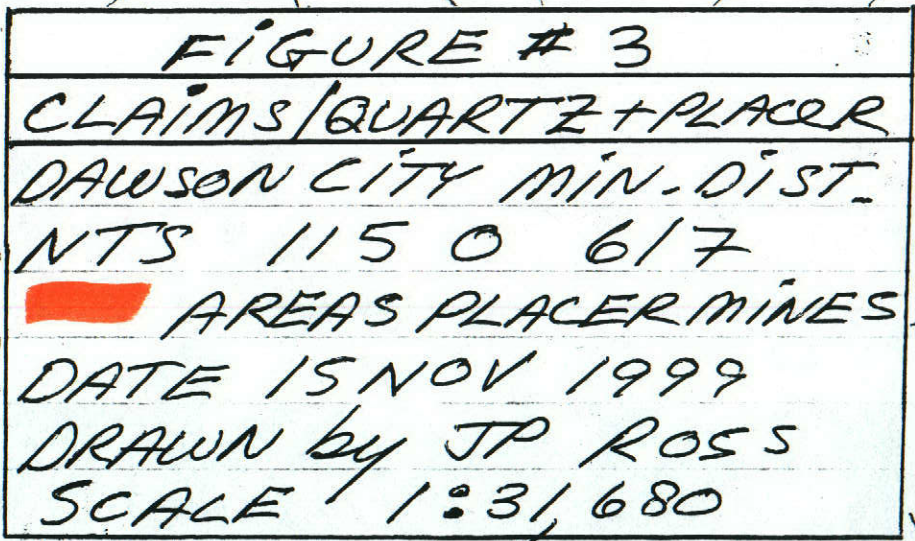 FIGURE # 3
CLAIMS/QUARTZ+PLACER
DAWSON CITY MIN. DIST.
NTS 115 O 6/7
AREAS PLACER MINES
DATE 15 NOV 1999
DRAWN by JP ROSS
SCALE 1:31,680